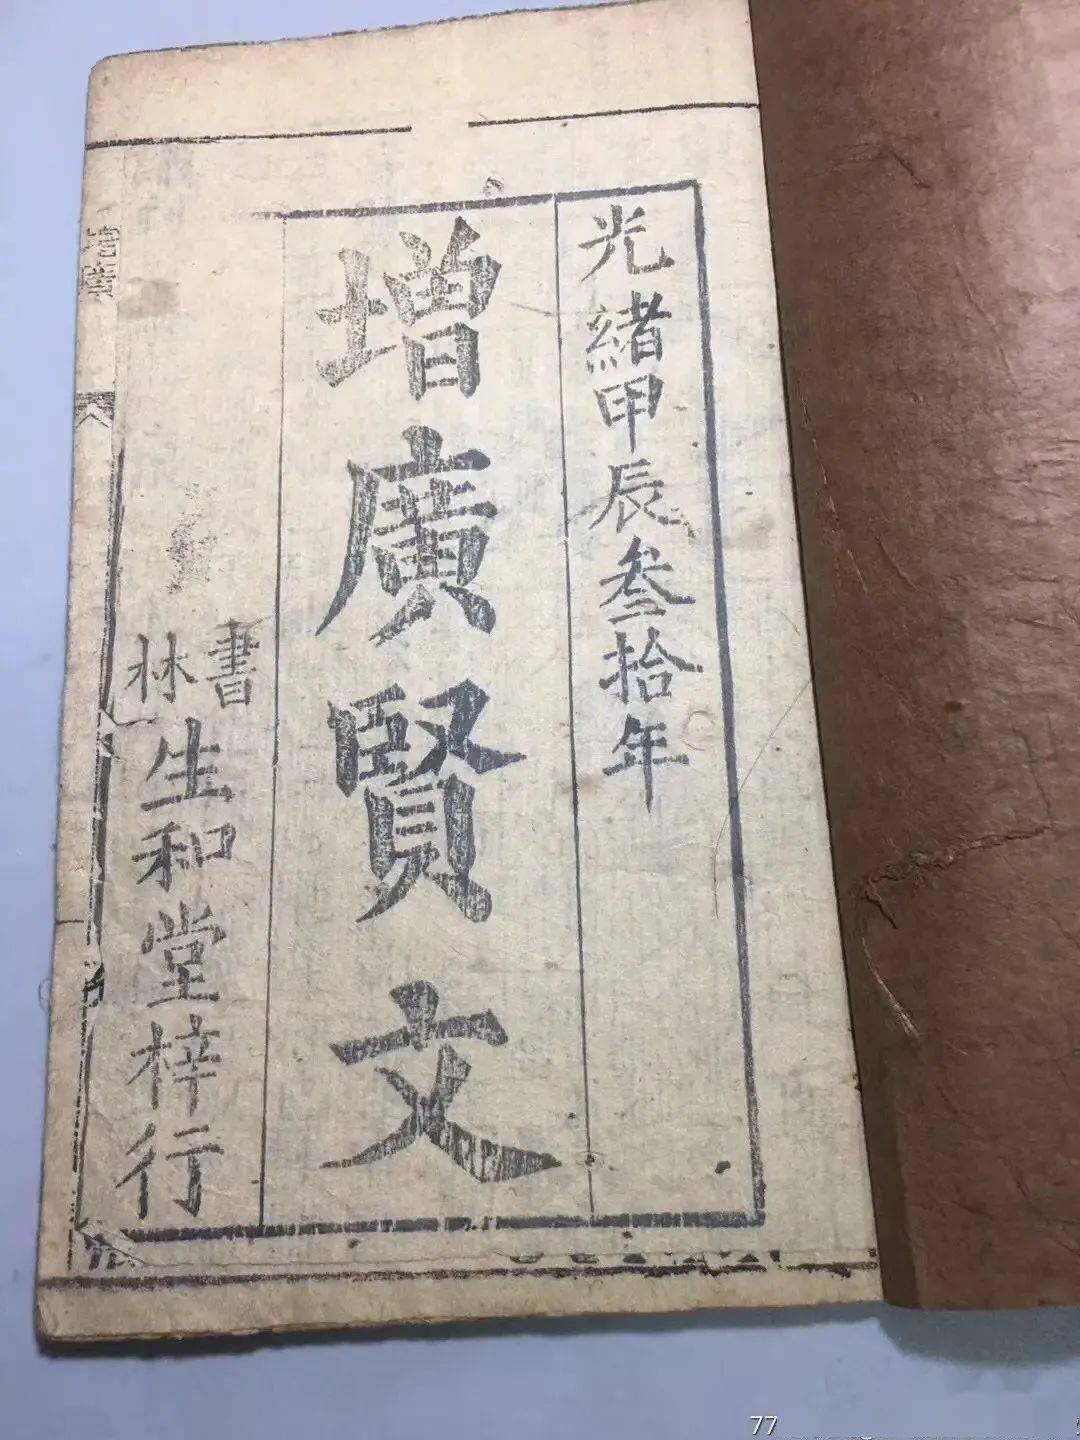 光緒甲辰叁拾年
增廣賢文
書林
生和堂梓行
77